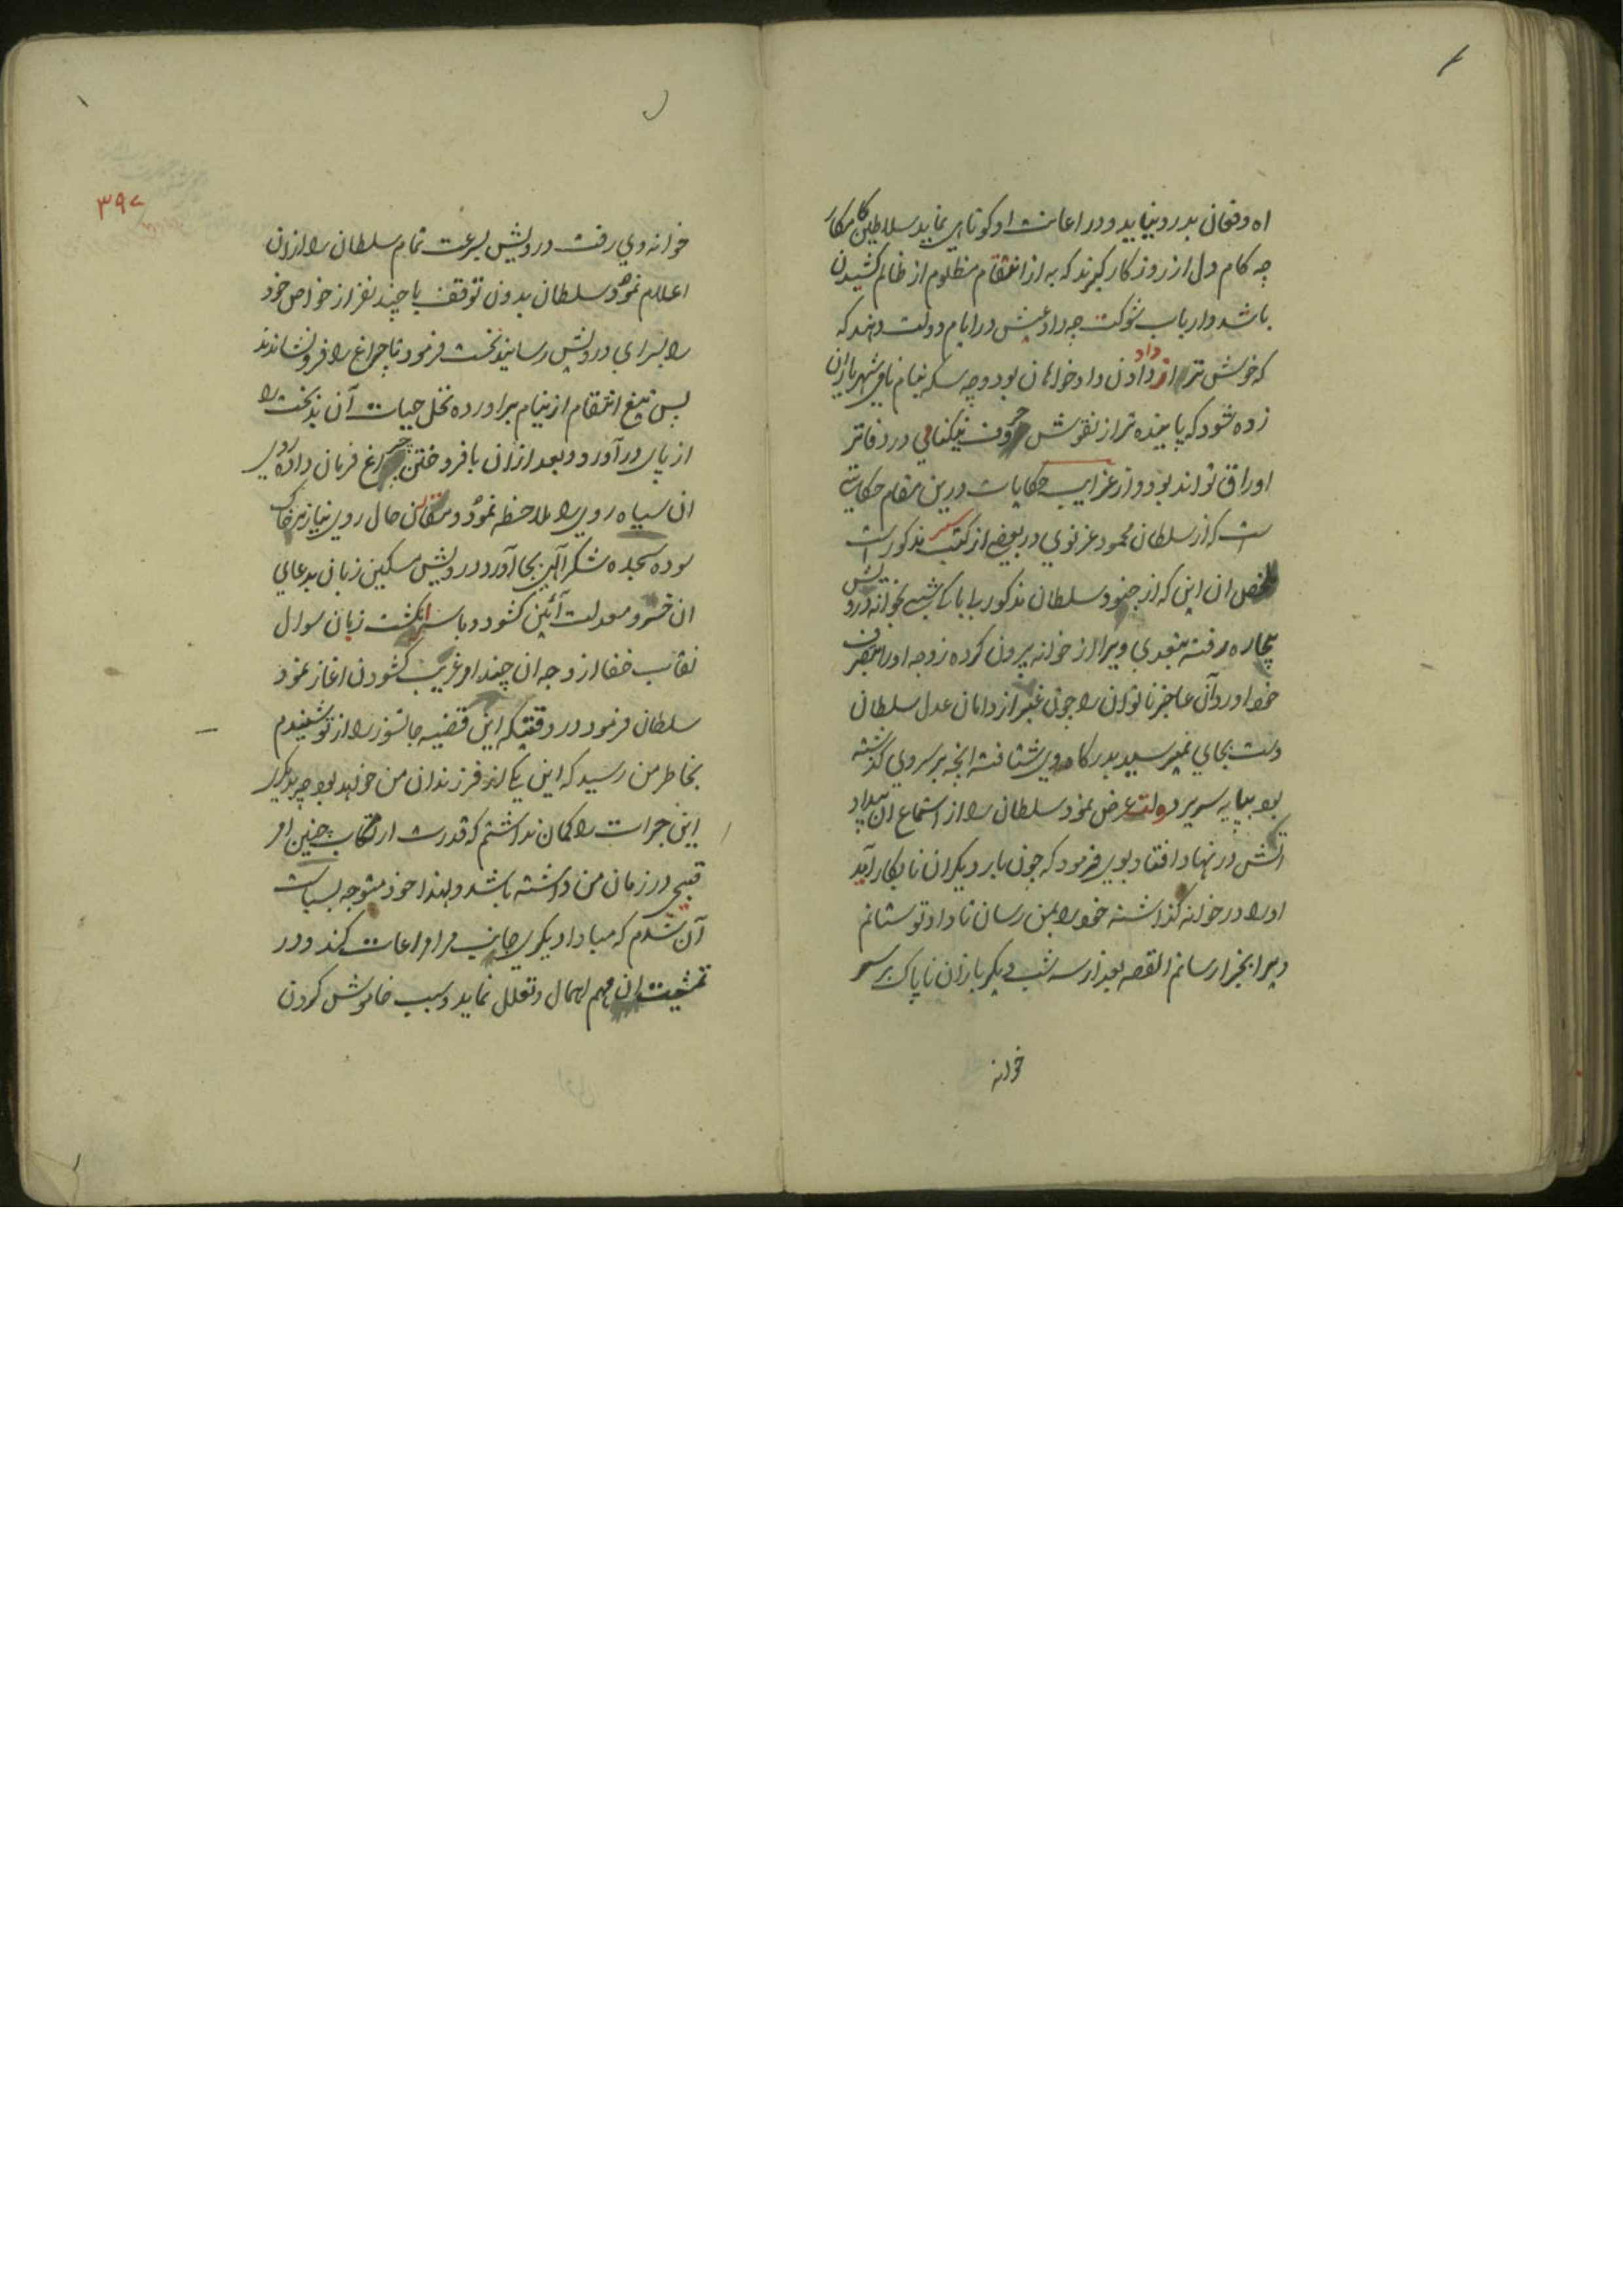 اه و فغان بدرد نیاید و در اعانت او کوتاهی نماید سلاطین کامکار
چه کام دل از روزکار کیرند که به از انتقام مظلوم از ظالم کشیدن
باشد و ارباب شوکت چه داد عیش در ایام دولت دهند که
که خوش تر از داد دادن داد خواهان بود و چه سکه بنام نامی شهریاران
زده شود که پاینده تر از نقوش حروف نیکنامی در دفاتر
اوراق تواند بود و از غرایب حکایات درین مقام حکایتی
ست که از سلطان محمود غزنوی در بعضی از کتب سیر مذکور است
ملخص ان این که از جنود سلطان مذکور بی باکی شبی بخوانه درویش
بیچاره رفته بتعدی ویرا از خوانه بیرون کرده زوجه او را بتصرف
خود اورد و آن عاجز ناتوان را چون غیر از دامان عدل سلطان
دست بجایی نمیرسید بدرکاه وی شتافته انچه بر سر وی کذشته
بود بپایه سریر دولت عرض نمود سلطان را از استماع ان بیداد
اتش در نهاد افتاد بوی فرمود که چون بار دیکر ان نابکار آید
او را در خوانه کذاشته خود را بمن رسان تا داد تو ستانم
ویرا بجزا رسانم القصه بعد از سه شب دیکر باز ان ناپاک بر سر
خوانه
۳۹۷
خوانه وی رفت درویش بسرعت تمام سلطان را از ان
اعلام نمود سلطان بدون توقف با چند نفر از خواص خود
را بسرای درویش رسانید نخست فرمود تا چراغ را فرو نشاندند
پس تیغ انتقام از نیام براورده نخل حیات آن بدبخت را
از پای در آورد و بعد از ان بافروختن چراغ فرمان داده روی
ان سیاه روی را ملاحظه نمود و مقارن حال روی نیاز بر خاک
سوده سجده شکر الهی بجا آورد درویش مسکین زبان بدعای
ان خسرو معدلت آئین کشود و با سر انکشت زبان سوال
نقاب خفا از وجه ان چند امر غریب کشودن اغاز نمود
سلطان فرمود در وقتیکه این قضیه جانسوز را از تو شنیدم
بخاطر من رسید که این یکی از فرزندان من خواهد بود چه بدیکری
این جرات را کمان نداشتم که قدرت ارتکاب چنین امر
قبیحی در زمان من داشته باشد و لهذا خود متوجه سیاست
آن شدم که مبادا دیکری جانب مرا مراعات کند و در
تمشیت ان مهم اهمال و تعلل نماید و سبب خاموش کردن